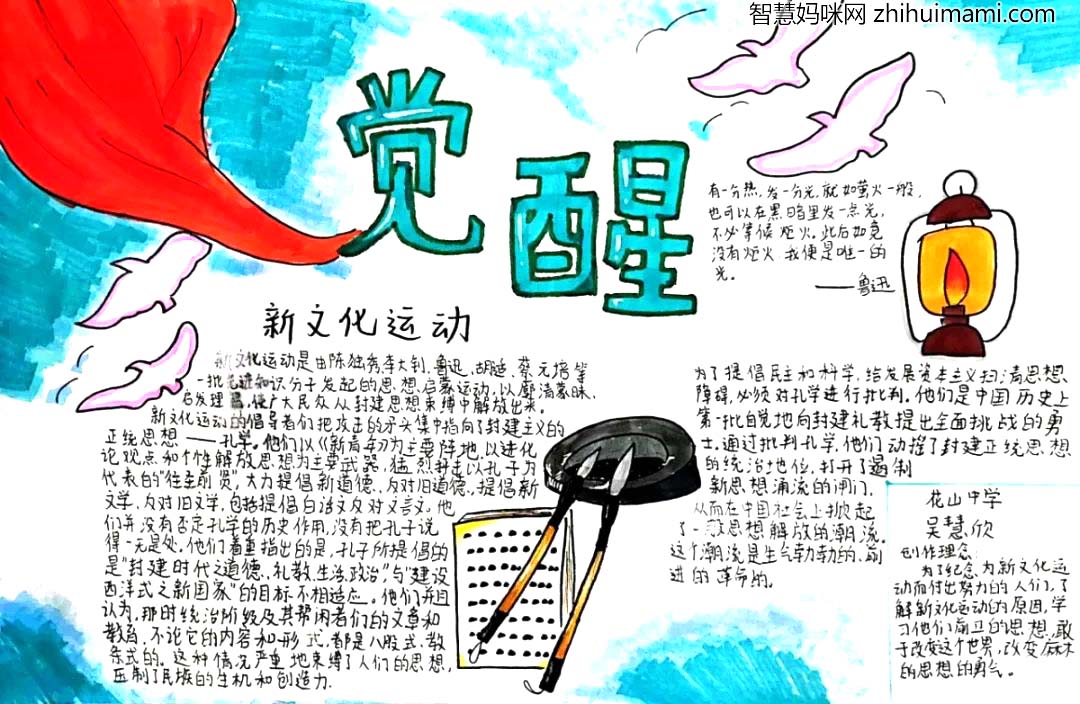 智慧妈咪网 zhihuimami.com
觉醒
有一分热，发一分光，就如萤火一般，
也可以在黑暗里发一点光，
不必等候炬火。此后如竟
没有炬火，我便是唯一的
光。
——鲁迅
新文化运动
新文化运动是由陈独秀李大钊、鲁迅、胡适、蔡元培等
一批先进知识分子发起的思想启蒙运动，以廓清蒙昧、
启发理，使广大民众从封建思想束缚中解放出来。
新文化运动的倡导者们把攻击的矛头集中指向了封建主义的
正统思想——孔学。他们以《新青年》为主要阵地，以进化
论观点和个性解放思想为主要武器，猛烈抨击以孔子为
代表的“往圣前贤”，大力提倡新道德、反对旧道德，提倡新
文学、反对旧文学，包括提倡白话文反对文言文。他
们并没有否定孔学的历史作用，没有把孔子说
得一无是处。他们着重指出的是，孔子所提倡的
是“封建时代之道德、礼教、生活、政治”，与“建设
西洋式之新国家”的目标不相适应。他们并且
认为，那时统治阶级及其帮闲者们的文章和
教育，不论它的内容和形式，都是八股式、教
条式的。这种情况严重地束缚了人们的思想，
压制了民族的生机和创造力.
为了提倡民主和科学，给发展资本主义扫清思想、
障碍，必须对孔学进行批判。他们是中国历史上
第一批自觉地向封建礼教提出全面挑战的勇
士。通过批判孔学，他们动摇了封建正统思想
的统治地位，打开了遏制
新思想涌流的闸门，
从而在中国社会上掀起
了一股思想解放的潮流。
这个潮流是生气勃勃的、前
进的革命的。
花山中学
吴慧欣
创作理念：
为了纪念为新文化运
动而付出努力的人们，了
解新文化运动的原因，学
习他们前卫的思想，敢
于改变这个世界，改变麻木
的思想的勇气。